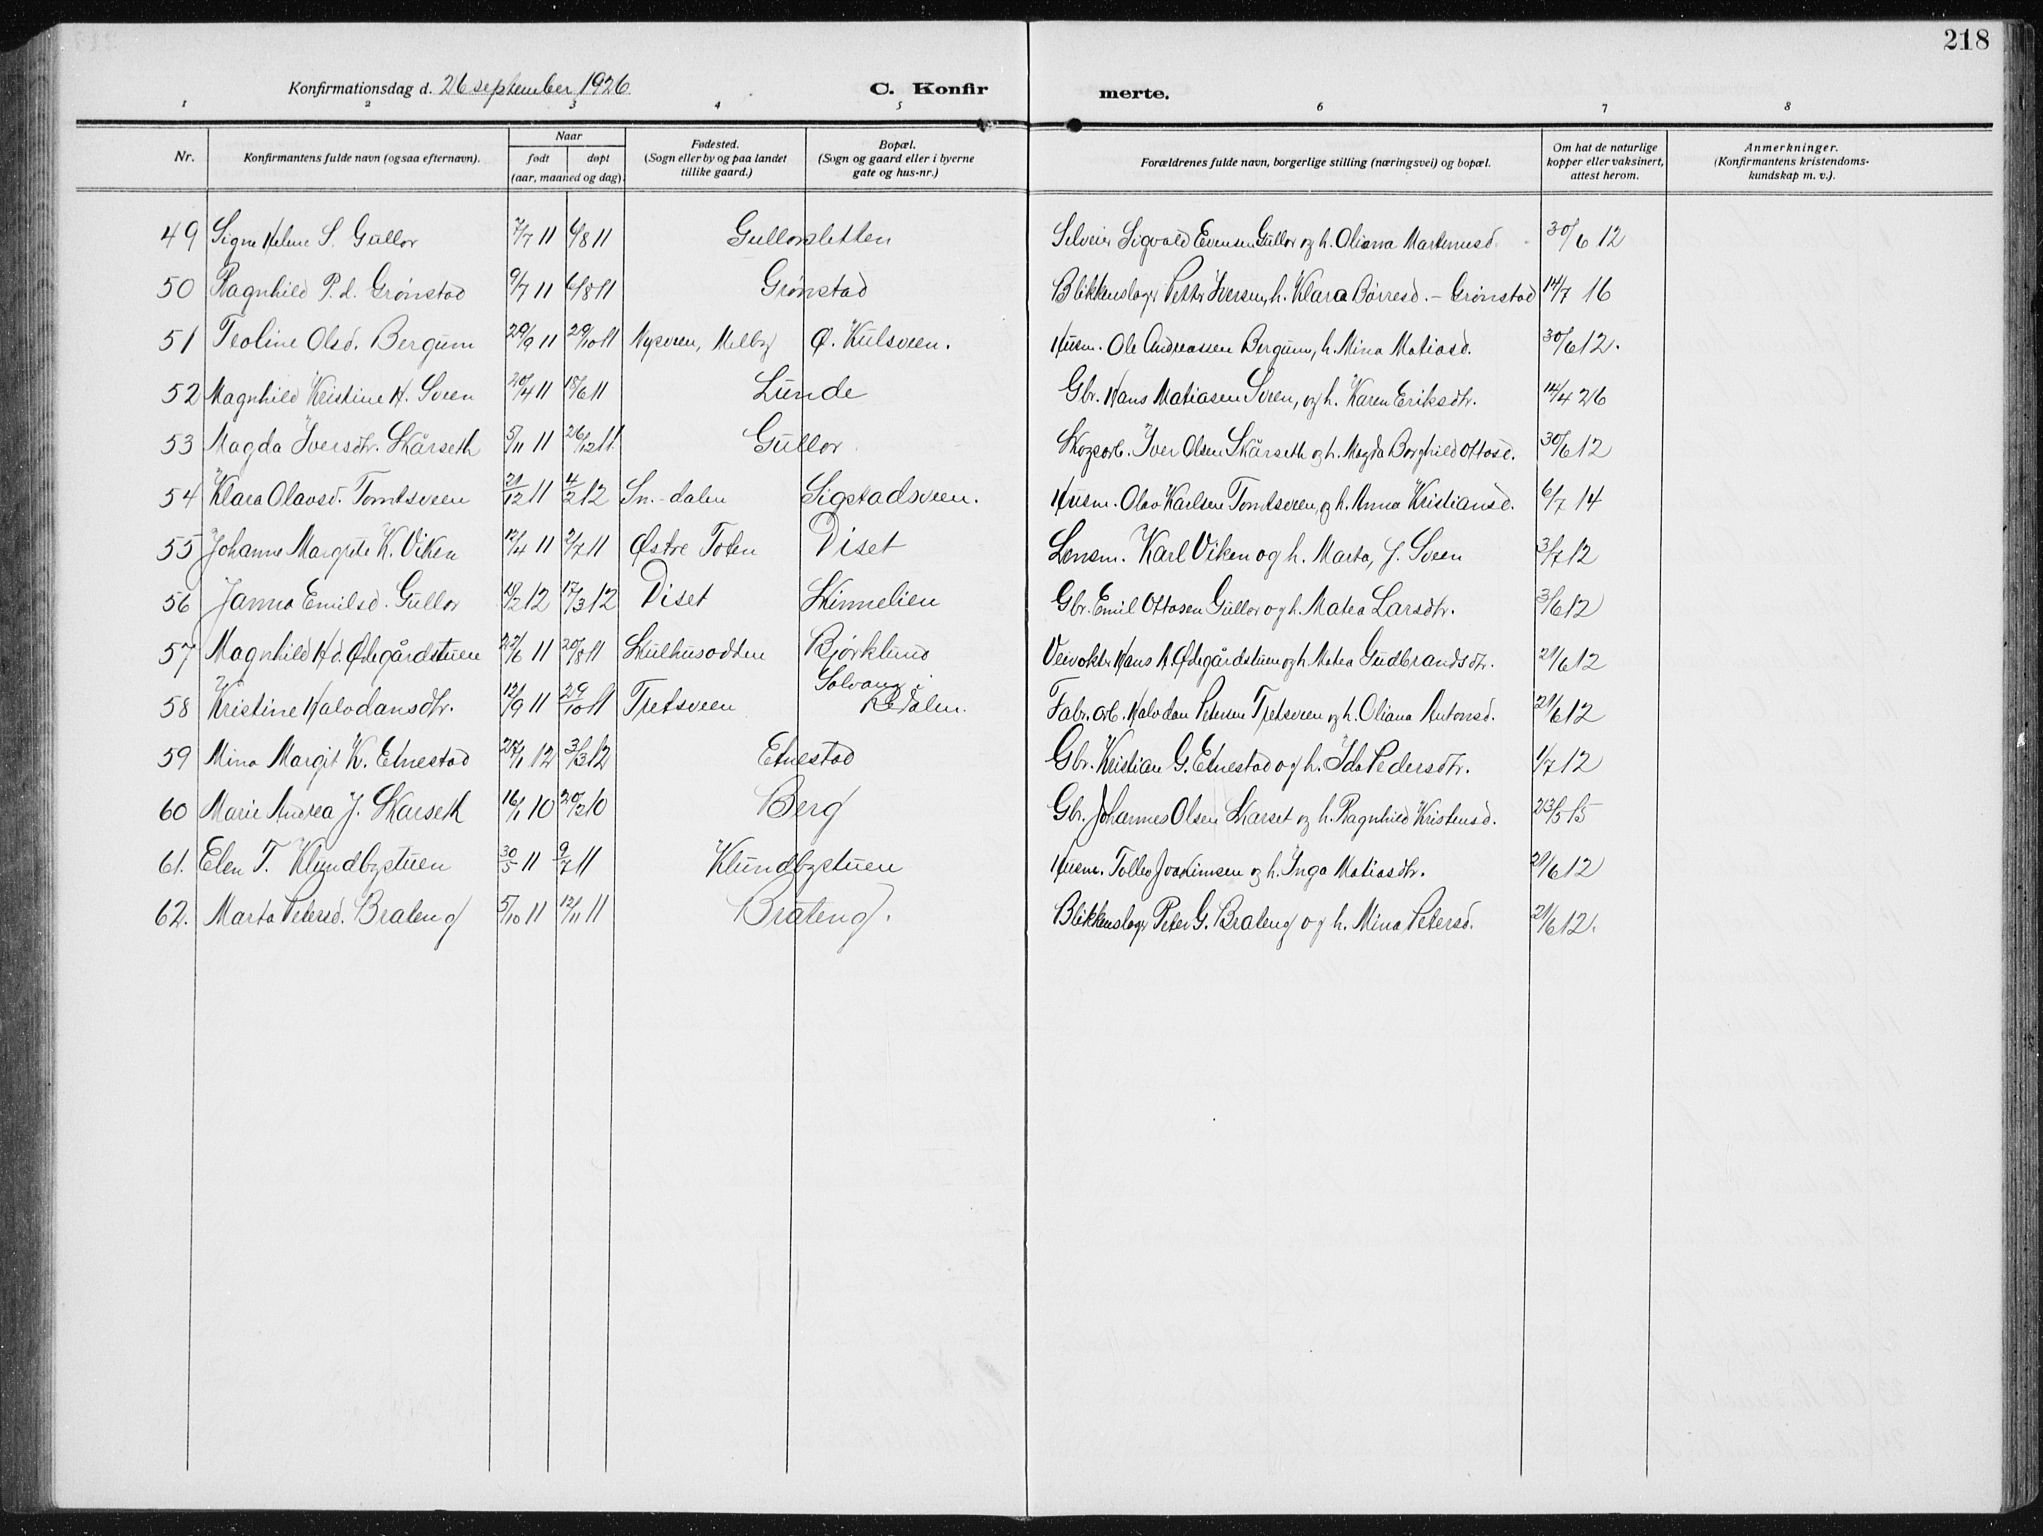 218
Konfirmationsdag d. 26 september 1926 C. Konfir merte.
1 2 3 4 5 6 7 8
Nr. Konfirmantens fulde navn (ogsaa efternavn). Naar født døpt (aar, maaned og dag). Fødested. (Sogn eller by og paa landet tillike gaard.) Bopæl. (Sogn og gaard eller i byerne gate og hus-nr.) Forældrenes fulde navn, borgerlige stilling (næringsvei) og bopæl. Om hat de naturlige kopper eller vaksinert, attest herom. Anmerkninger. (Konfirmantens kristendoms-kundskap m. v.).
49 Signe Helene S. Gullor 7/7 11 6/8 11 Gullorsletten Sigvald Evensen Gullor og h. Oliana Martinusd. 30/6 12
50 Ragnhild P.d. Grønstad 9/7 11 6/8 11 Grønstad Blikkenslager Petter Iversen, h. Klara Børresd. - Grønstad 14/7 16
51 Teoline Olsd. Bergum 29/9 11 29/10 11 Nysveen, Melby Ø. Kulsveen. Husm. Ole Andreassen Bergum, h. Mina Matiasd. 30/6 12.
52 Magnhild Kristine H. Sveen 20/4 11 18/6 11 Lunde Gbr. Hans Matiasen Sveen, og h. Karen Eriksdtr. 14/4 26
53 Magda Iversdtr. Skårseth 5/11 11 26/12 11 Gullor Skogsarb. Iver Olsen Skårseth og h. Magda Borghild Ottosd. 30/6 12
54 Klara Olavsd. Tomtsveen 21/12 11 4/2 12 Sn.-dalen Sigstadsveen. Husm. Olav Karlsen Tomtsveen, og h. Anna Kristiansd. 6/7 14
55 Johanne Margrete K. Viken 12/4 11 2/7 11 Østre Toten Diset Lensm. Karl Viken og h. Marta, J. Sveen 3/7 12
56 Janna Emilsd. Gullor 19/2 12 17/3 12 Diset Skinnelien Gbr. Emil Ottosen Gullor og h. Matea Larsdtr. 3/6 12
57 Magnhild H.d. Ødegårdstuen 22/6 11 20/8 11 Skulhusodden Bjørklund Veivokter Hans A. Ødegårdstuen og h. Matea Gudbrandsdtr. 21/6 12
58 Kristine Halvdansdtr. 12/9 11 29/10 11 Tretsveen Solvang i Redalen. Fabr. arb. Halvdan Petersen Tretsveen og h. Oliana Antonsd. 21/6 12
59 Mina Margit K. Etnestad 25/1 12 3/3 12 Etnestad Gbr. Kristian G. Etnestad og h. Ida Pedersdtr. 1/7 12
60 Marie Andrea J. Skarseth 16/1 10 20/2 10 Berg Gbr. Johannes Olsen Skarset og h. Ragnhild Kristensd. 23/5 15
61. Elen T. Klundbystuen 30/5 11 9/7 11 Klundbystuen Husm. Tollev Joakimsen og h. Inga Matiasdtr. 21/6 12
62. Marta Petersd. Brateng 5/10 11 12/11 11 Bråteng. Blikkenslager Peter G. Brateng og h. Mina Petersd. 21/6 12.